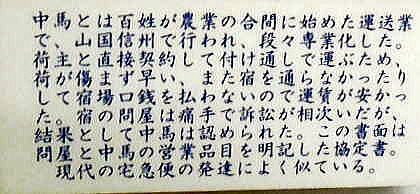 中馬とは百姓が農業の合間に始めた運送業
で、山国信州で行われ、段々専業化した。
荷主と直接契約して付け通しで運ぶため、
荷が傷まず早い、また宿を通らなかったり
して宿場口銭を払わないので運賃が安かっ
た。宿の問屋は痛手で訴訟が相次いだが、
結果として中馬は認められた。この書面は
問屋と中馬の営業品目を明記した協定書。
現代の宅急便の発達によく似ている。